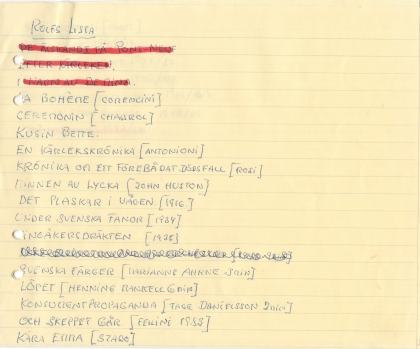 ROLFS LISTA
DE ÄLSKANDE PÅ PONT NEUF
EFTER KÄRLEKEN.
I HAMN AU BETINA.
LA BOHÈME [COMENCINI]
CEREMONIN [CHABROL]
KUSIN BETTE.
EN KÄRLEKSKRÖNIKA [ANTONIONI]
KRÖNIKA OM ETT FÖREBÅDAT DÖDSFALL [ROSI]
MINNEN AV LYCKA [JOHN HUSTON]
DET PLASKAR I VÅGEN [1916]
UNDER SVENSKA FANOR [1934]
VINGÅKERSDRÄKTEN [1925]
SVENSKA FÄRGER [MARIANNE AHRNE]
LÖPET [HENNING MANKELL]
KONSUMENTPROPAGANDA [TAGE DANIELSSON]
OCH SKEPPET GÅR [FELLINI 1983]
KÄRA EMMA [SZABO]